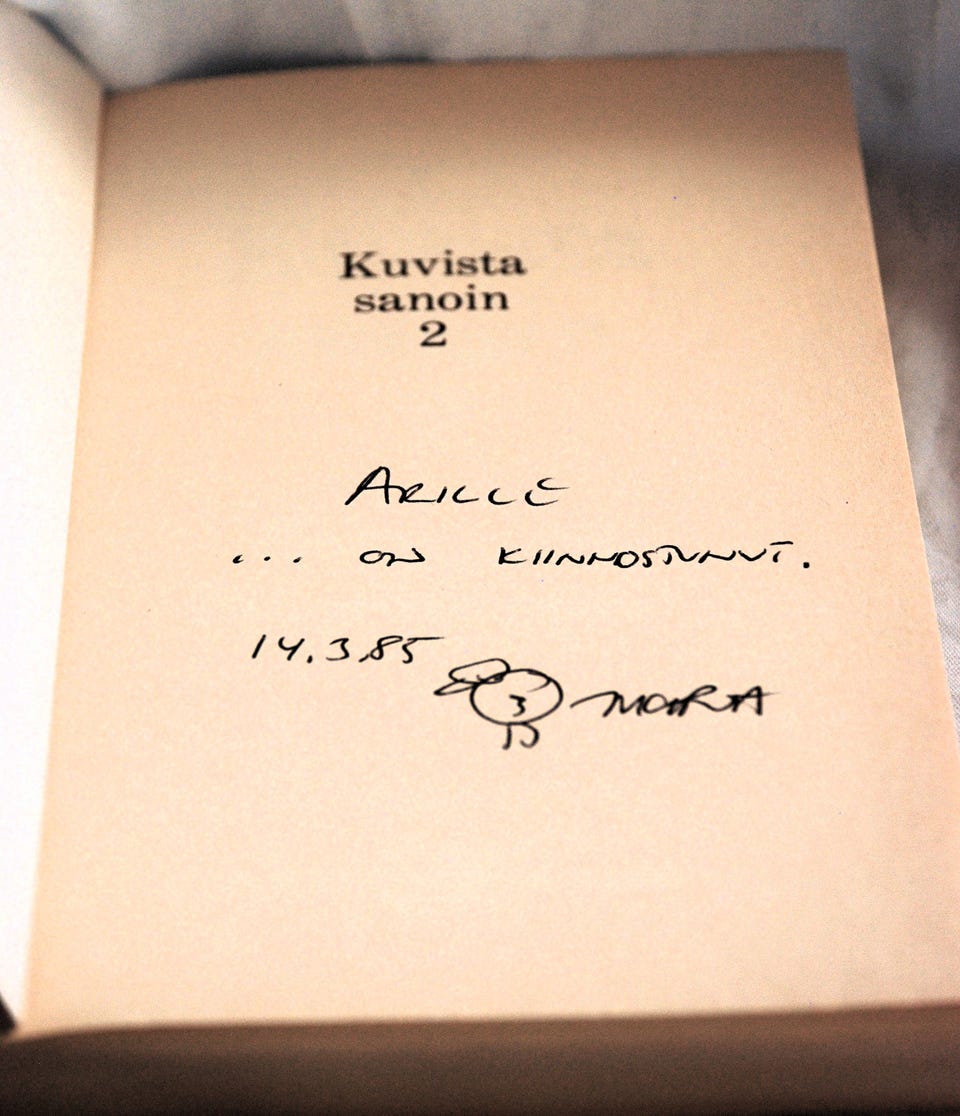 Kuvista
sanoin
2
ARILLE
... ON KIINNOSTUNUT.
14.3.85
3